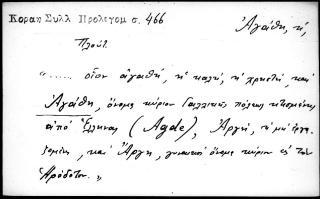 Κοραῆ Συλλ Προλεγομ σ. 466
Ἀγάθη, ἡ,
Πλούτ.
"..... οἷον ἀγαθὴ, ἡ καλὴ, ἡ χρηστὴ, καὶ
Ἀγάθη, ὄνομα κύριον Γαλλικῆς πόλεως κτισμένης
ἀπὸ Ἕλληνας (Agde), Ἀργὴ, ἡ μὴ ἐργα-
ζομένη, καὶ Ἄργη, γυναικὸς ὄνομα κύριον εἰς τὸν
Ἡρόδοτον."